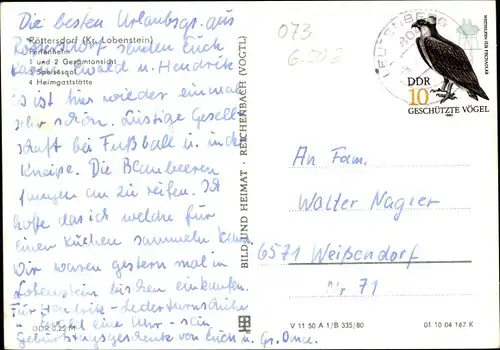 Die besten Urlaubsgr. aus
Röttersdorf (Kr. Lobenstein)
Röttersdorf senden Euch
Ferienheim
1 und 2 Gesamtansicht
Ewald u. Hendrik
3 Speisesaal
4 Heimgaststätte
Es ist hier wieder einmal
sehr schön. Lustige Gesell-
schaft bei Fußball u. in der
Kneipe. Die Blaubeeren
fangen an zu reifen. Ich
hoffe das ich welche für
einen Kuchen sammeln kann.
Wir waren gestern mal in
Lobenstein bischen einkaufen.
Für Hendrik - Lederturnschuhe
u. Ewald eine Uhr - sein
DDR 0,25 M
Geburtstagsgeschenk von Euch u. Gr. Oma.
BILD UND HEIMAT · REICHENBACH (VOGTL)
073
6.50 S
LEUTENBERG
DDR
10
GESCHÜTZTE VÖGEL
1982
An Fam.
Walter Nagler
6571 Weißendorf
Nr 71
V 11 50 A 1/B 335/80
01 10 04 167 K